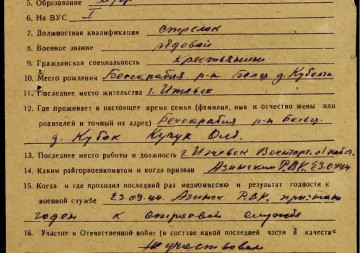 5. Образование
6. На ВУС I
7. Должностная квалификация стрелок
8. Военное звание рядовой
9. Гражданская специальность крестьянин
10. Место рождения Бессарабия р-н Бельц д. Кубольта
11. Последнее место жительства г. Ижевск
12. Где проживает в настоящее время семья (фамилия, имя и отчество жены или
родителей и точный их адрес) Бессарабия р-н Бельц.
д. Кубок
13. Последнее место работы и должность г. Ижевск
14. Каким райгорвоенкоматом и когда призван Азинским РВК 23.09.44
15. Когда и где проходил последний раз медкомиссию и результат годности к
военной службе 23.09.44. Азинск РВК. признан
годен к строевой службе
16. Участие в Отечественной войне (в составе какой последней части в качестве
Не участвовал